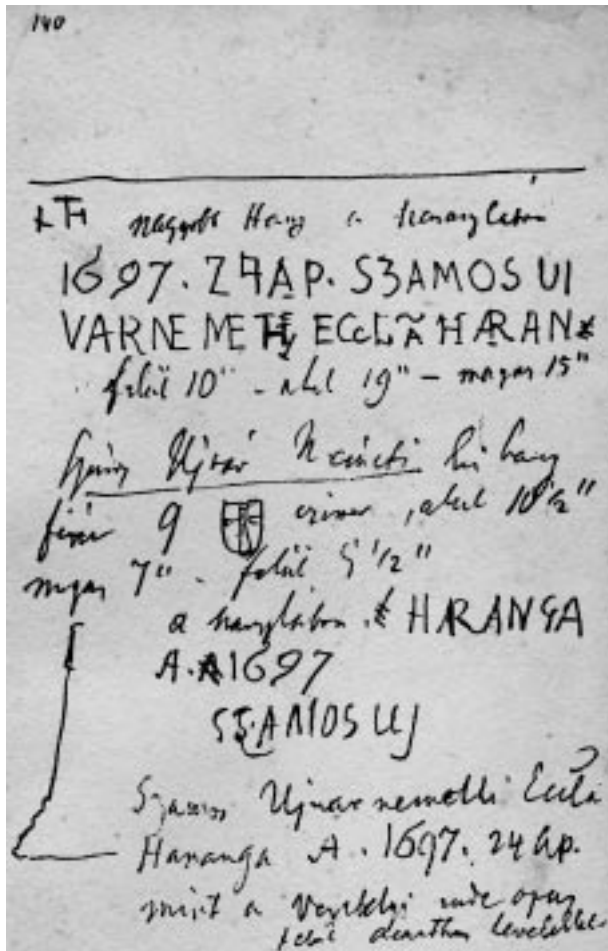 140
nagyobb Harang a haranglábon
1697. 24 AP. SZAMOS UI
VARNEMETHY ECCLÃ HARAN
felül 10" - alul 19" - magas 15"
Szamos Ujvár Németi kis harang
9 czimer, alul 10 1/2"
magas 7" - felül 5 1/2"
a haranglábon. HARANGA
A. 1697
SZAMOS UJ
Szamos Ujvar nemetti Eccla
Haranga A. 1697. 24 Ap.
mint a
felül levelekkel